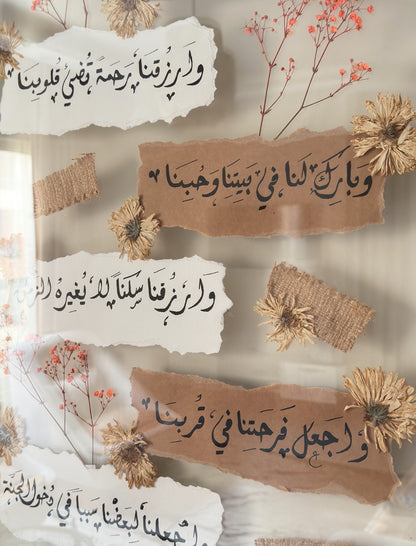 وَارْزُقنَا رَحمَةً تُضيءُ قُلوبنَا
وَبَارِكْ لَنا في بَيتِنا وَحُبِنا
وَارْزُقنَا سَكنَاً لا يُغيرهُ
وَاجعَل فَرحَتنا في قُربِنَا
وَاجْعلنا لِبَعضِنا سَببَاً في دُخول الجنة